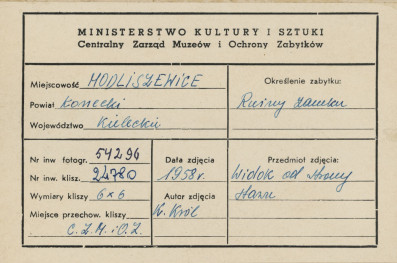 MINISTERSTWO KULTURY I SZTUKI
Centralny Zarząd Muzeów i Ochrony Zabytków
Miejscowość MODLISZEWICE
Powiat Konecki
Województwo Kieleckie
Określenie zabytku:
Ruiny zamku
Nr inw fotogr. 54296
Nr inw. klisz. 24780
Wymiary kliszy 6x6
Miejsce przechow. kliszy
C.Z.M. i O.Z.
Data zdjęcia
1958 r.
Autor zdjęcia
K. Król
Przedmiot zdjęcia:
Widok od strony